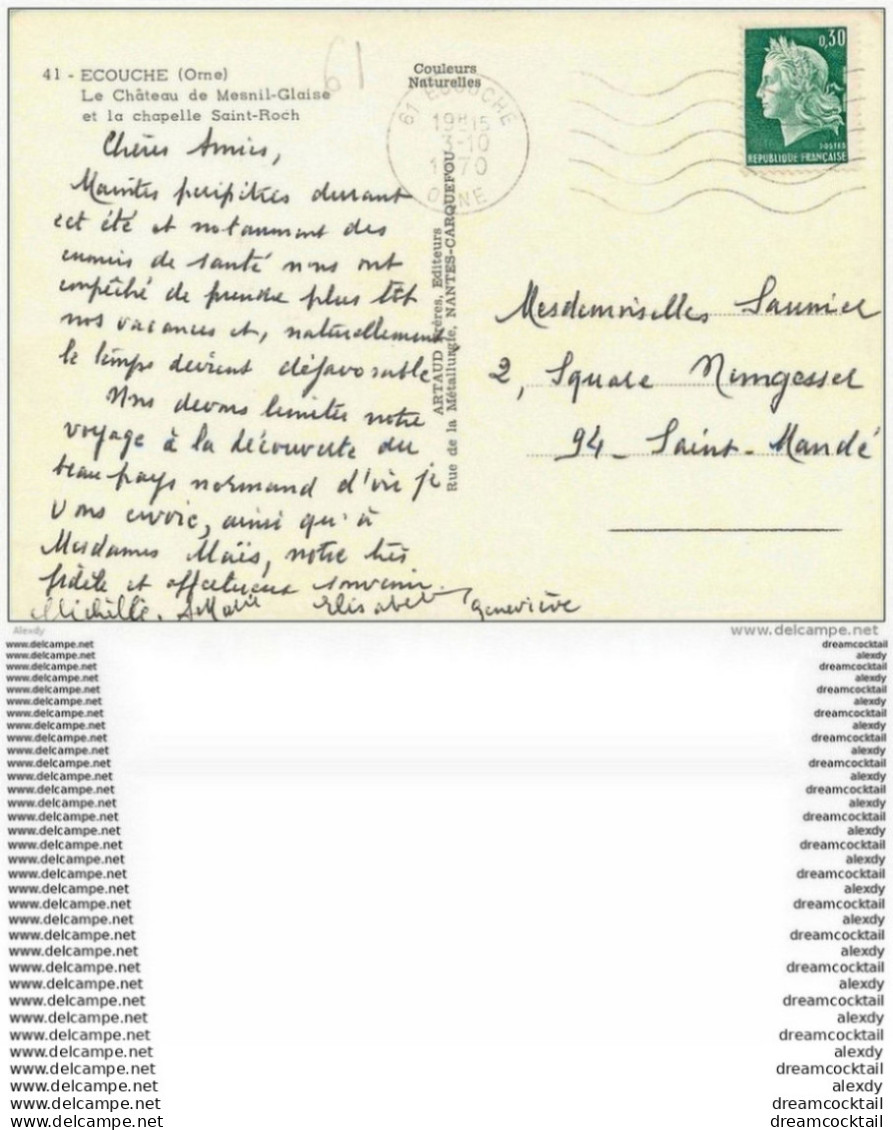 41 - ECOUCHE (Orne)
Le Château de Mesnil-Glaise
et la chapelle Saint-Roch
61
Couleurs
Naturelles
61 ECOUCHE
19H15
3-10
1970
ORNE
0,30
POSTES
REPUBLIQUE FRANÇAISE
Chères Amies,
Maintes péripéties durant
cet été et notamment des
ennuis de santé nous ont
empêché de prendre plus tôt
nos vacances et, naturellement
le temps devient défavorable
Nous devons limiter notre
voyage à la découverte du
beau pays normand d'où je
Vous envoie, ainsi qu'à
Mesdames Maïs, notre très
fidèle et affectueux souvenir.
Michelle. AMarie Elisabeth Geneviève
ARTAUD Frères, Editeurs
Rue de la Métallurgie, NANTES-CARQUEFOU
Mesdemoiselles Saunier
2, Square Nungesser
94 - Saint-Mandé
Alexdy
www.delcampe.net
www.delcampe.net dreamcocktail
www.delcampe.net alexdy
www.delcampe.net dreamcocktail
www.delcampe.net alexdy
www.delcampe.net dreamcocktail
www.delcampe.net alexdy
www.delcampe.net dreamcocktail
www.delcampe.net alexdy
www.delcampe.net dreamcocktail
www.delcampe.net alexdy
www.delcampe.net dreamcocktail
www.delcampe.net alexdy
www.delcampe.net dreamcocktail
www.delcampe.net alexdy
www.delcampe.net dreamcocktail
www.delcampe.net alexdy
www.delcampe.net dreamcocktail
www.delcampe.net alexdy
www.delcampe.net dreamcocktail
www.delcampe.net alexdy
www.delcampe.net dreamcocktail
www.delcampe.net alexdy
www.delcampe.net dreamcocktail
www.delcampe.net alexdy
www.delcampe.net dreamcocktail
www.delcampe.net alexdy
www.delcampe.net dreamcocktail
www.delcampe.net alexdy
www.delcampe.net dreamcocktail
www.delcampe.net alexdy
www.delcampe.net dreamcocktail
www.delcampe.net alexdy
www.delcampe.net dreamcocktail
www.delcampe.net dreamcocktail